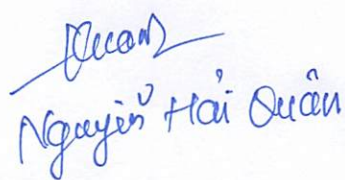 Quan
Nguyễn Hải Quân